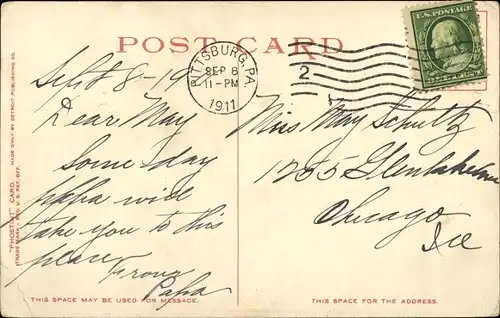 POST CARD
U.S. POSTAGE
PITTSBURG, PA.
SEP 8
11-PM
1911
2
Sept 8-19
Dear May
Some day
papa will
take you to this
place
from
Papa
Miss May Schultz
1255 Glenlake Ave
Chicago
Ill
"PHOSTINT" CARD. MADE ONLY BY DETROIT PUBLISHING CO.
TRADE MARK REG. U.S. PAT. OFF.
THIS SPACE MAY BE USED FOR MESSAGE.
THIS SPACE FOR THE ADDRESS.